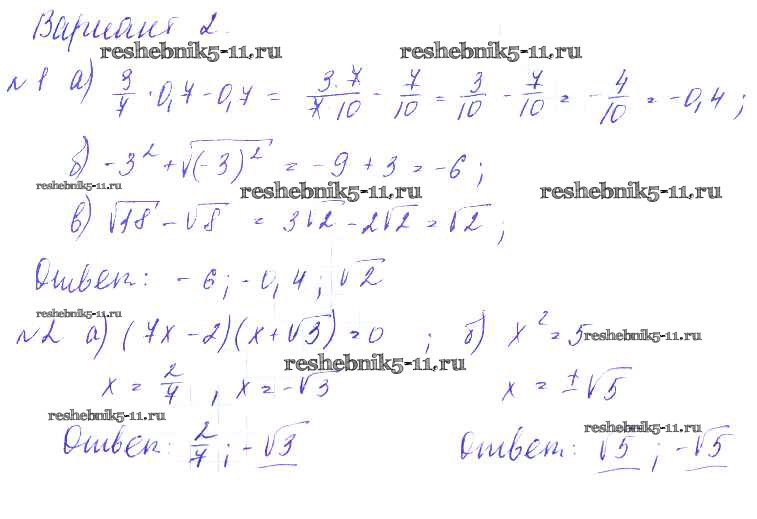 Вариант 2.
reshebnik5-11.ru reshebnik5-11.ru
№1 а) 3/7 · 0,7 - 0,7 = 3·7/7·10 - 7/10 = 3/10 - 7/10 = -4/10 = -0,4;
б) -3² + √(-3)² = -9 + 3 = -6;
reshebnik5-11.ru reshebnik5-11.ru reshebnik5-11.ru
в) √18 - √8 = 3√2 - 2√2 = √2;
Ответ: -6; -0,4; √2
reshebnik5-11.ru
№2 а) (7x - 2)(x + √3) = 0 ; б) x² = 5
reshebnik5-11.ru
reshebnik5-11.ru
x = 2/7 , x = -√3 x = ±√5
reshebnik5-11.ru
reshebnik5-11.ru
Ответ: 2/7; -√3 Ответ: √5; -√5